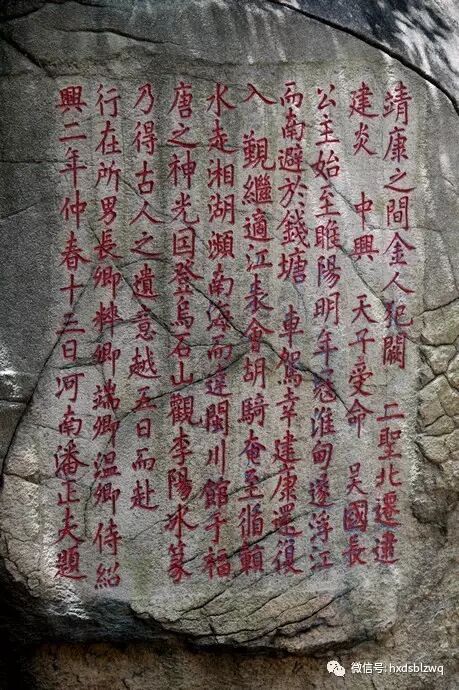 靖康之間金人犯闕　二聖北遷逮
建炎　中興　天子受命　吳國長
公主始至睢陽明年冦淮甸遂浮江
而南避於錢塘　車駕幸建康還復
入　覲繼適江表會胡騎奄至循贑
水走湘湖瀕南海而達閩川館于福
唐之神光因登烏石山觀李陽冰篆
乃得古人之遺意越五日而赴
行在所男長卿粹卿端卿溫卿侍紹
興二年仲春十三日河南潘正夫題
微信号: hxdsblzwq